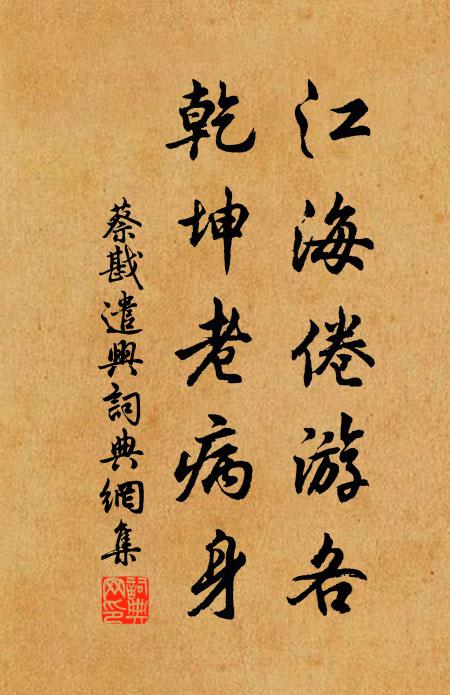 江海倦游各
乾坤老病身
蔡戡遣興詞典網集
詞典網印